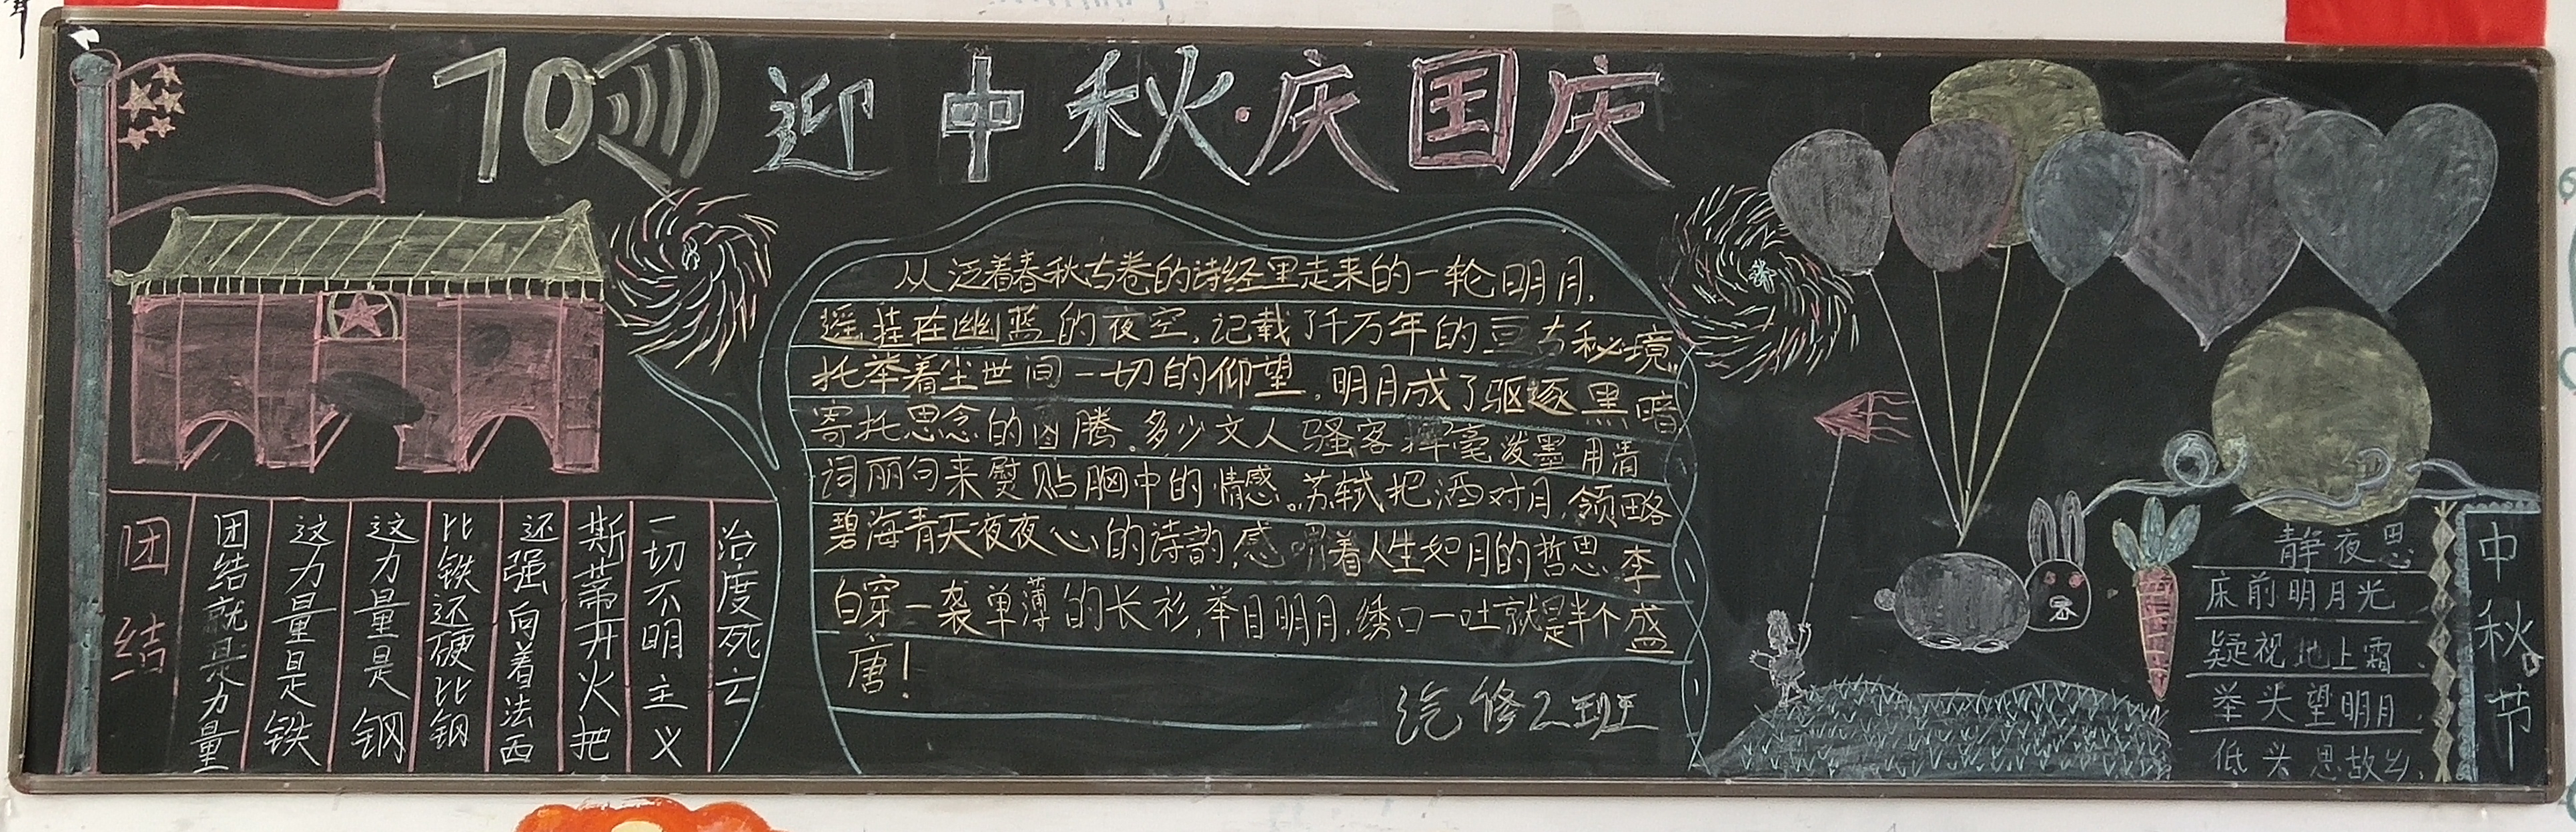 70
迎中秋·庆国庆
团结
团结就是力量
这力量是铁
这力量是钢
比铁还硬比钢
还强向着法西
斯蒂开火把
一切不明主义
治度死亡
从泛着春秋古卷的诗经里走来的一轮明月,
遥挂在幽蓝的夜空,记载了千万年的亘古秘境,
托举着尘世间一切的仰望,明月成了驱逐黑暗
寄托思念的图腾。多少文人骚客挥毫泼墨用清
词丽句来熨贴胸中的情感。苏轼把酒对月,领略
碧海青天夜夜心的诗韵,感喟着人生如月的哲思李
白穿一袭单薄的长衫,举目明月,绣口一吐就是半个盛
唐!
汽修2班
静夜思
床前明月光
疑视地上霜
举头望明月,
低头思故乡,
中秋节